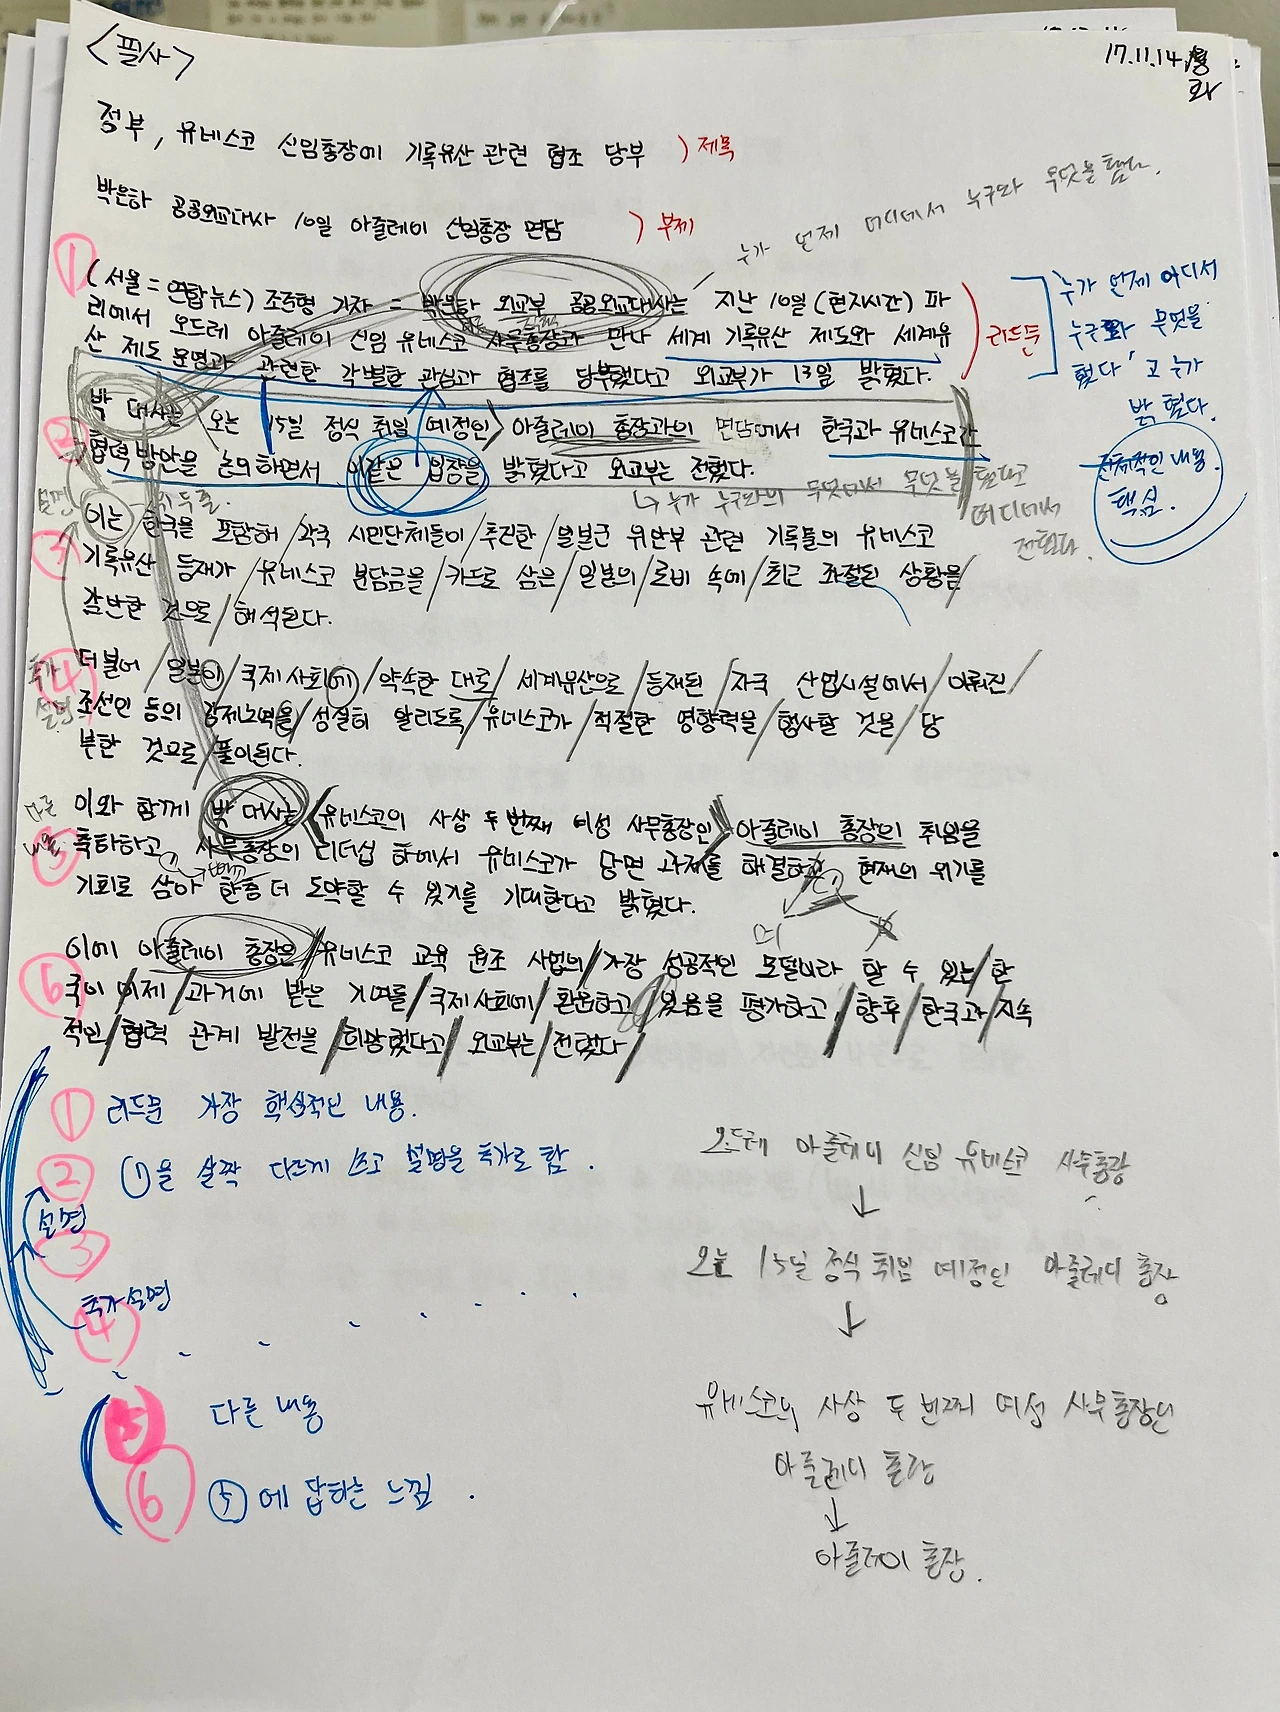 <필사>
17.11.14.
화
정부, 유네스코 신임총장에 기록유산 관련 협조 당부 ) 제목
박은하 공공외교대사 10일 아줄레이 신임총장 면담 ) 부제
누가 언제 어디에서 누구와 무엇을 했다.
① (서울=연합뉴스) 조준형 기자 = 박은하 외교부 공공외교대사는 지난 10일 (현지시간) 파
리에서 오드레 아줄레이 신임 유네스코 사무총장과 만나 세계 기록유산 제도와 세계유
산 제도 운영과 관련한 각별한 관심과 협조를 당부했다고 외교부가 13일 밝혔다.
리드문
누가 언제 어디서
누구와 무엇을
했다' 고 누가
밝혔다.
전체적인 내용.
핵심.
② 박 대사는 오는 15일 정식 취임 예정인 아줄레이 총장과의 면담에서 한국과 유네스코간
협력 방안을 논의하면서 이같은 입장을 밝혔다고 외교부는 전했다.
↳ 누가 누구와의 무엇에서 무엇을 했다고
어디에서
전했다.
설명
③ 이는 한국을 포함해 / 각국 시민단체들이 / 추진한 / 일본군 위안부 관련 기록들의 유네스코
기록유산 등재가 / 유네스코 분담금을 / 카드로 삼은 / 일본의 / 로비 속에 / 최근 좌절된 상황을 /
감안한 것으로 / 해석된다.
추가
설명
④ 더불어 / 일본이 / 국제사회에 / 약속한 대로 / 세계유산으로 / 등재된 / 자국 산업시설에서 / 이뤄진 /
조선인 등의 강제노역을 / 성실히 알리도록 / 유네스코가 / 적절한 영향력을 / 행사할 것을 / 당
부한 것으로 / 풀이된다.
다른
내용
⑤ 이와 함께 박 대사는 <유네스코의 사상 두번째 여성 사무총장인> 아줄레이 총장의 취임을
축하하고 사무총장의 리더십 하에서 유네스코가 당면 과제를 해결하고 현재의 위기를
기회로 삼아 한층 더 도약할 수 있기를 기대한다고 밝혔다.
⑥ 이에 아줄레이 총장은 / 유네스코 교육 원조 사업의 / 가장 성공적인 모델이라 할 수 있는 / 한
국이 이제 / 과거에 받은 기여를 / 국제사회에 / 환원하고 / 있음을 평가하고 / 향후 / 한국과 / 지속
적인 / 협력 관계 발전을 / 희망했다고 / 외교부는 / 전했다 /
① 리드문 가장 핵심적인 내용.
② ①을 살짝 다르게 쓰고 설명을 추가로 함.
설명
③
추가설명
④
⑤ 다른 내용
⑥ ⑤에 답하는 느낌.
오드레 아줄레이 신임 유네스코 사무총장
↓
오는 15일 정식 취임 예정인 아줄레이 총장
↓
유네스코의 사상 두번째 여성 사무총장인
아줄레이 총장
↓
아줄레이 총장.